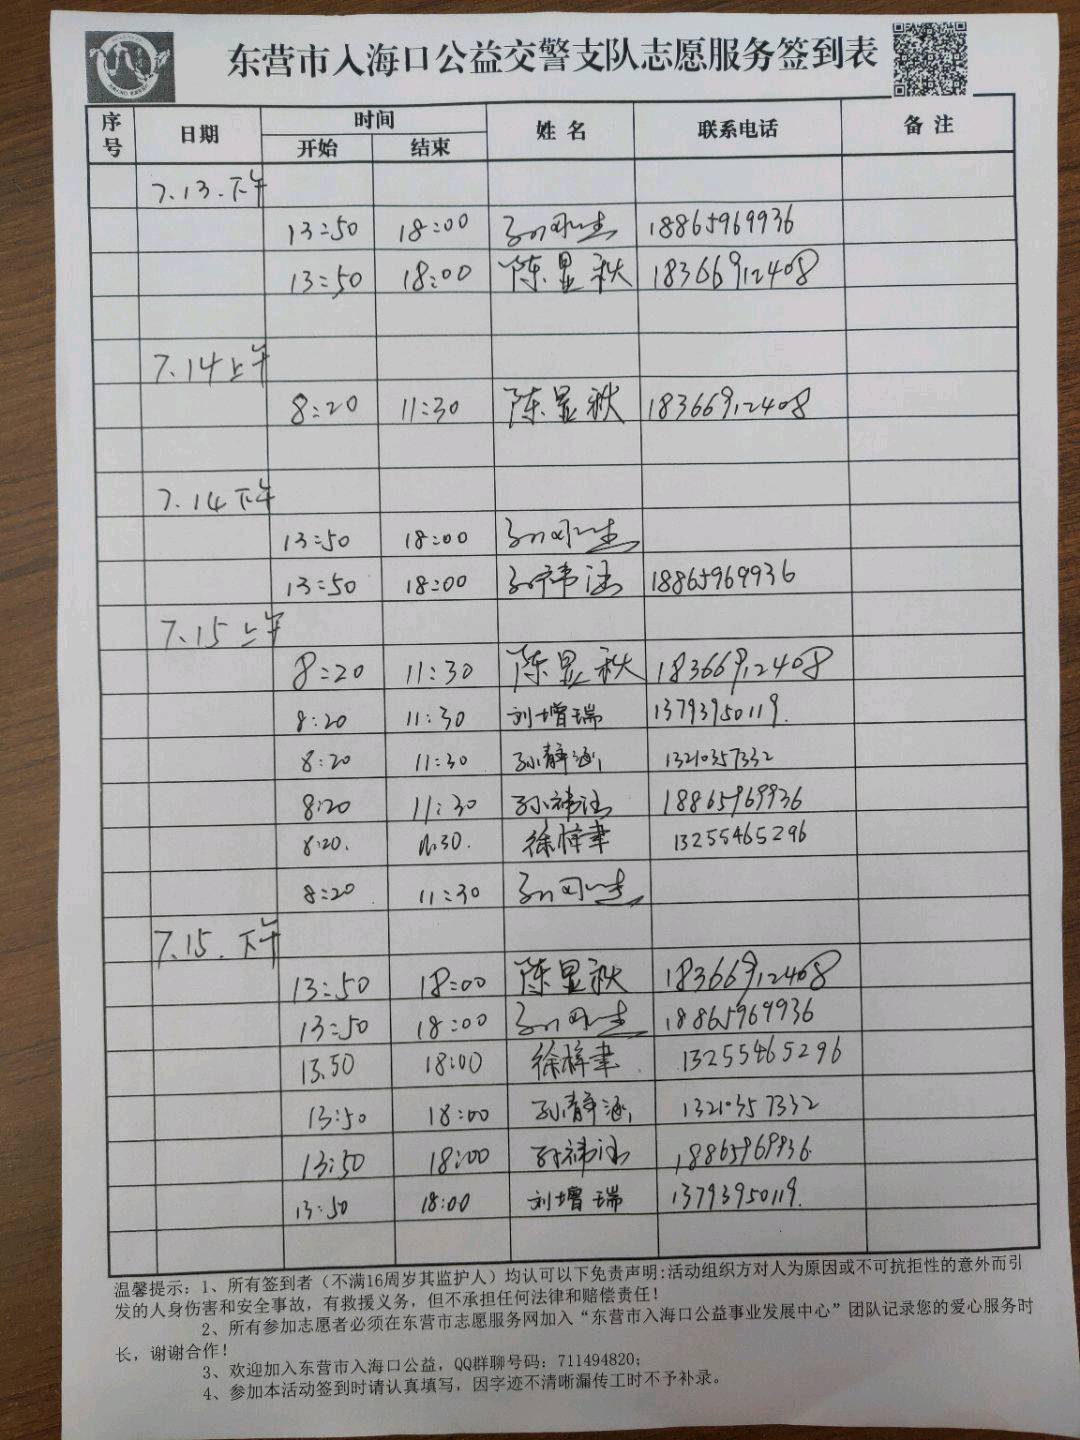 东营市入海口公益交警支队志愿服务签到表
序号 日期 时间 姓名 联系电话 备注
开始 结束
7.13.下午
13:50 18:00 18865969936
13:50 18:00 陈显秋 18366912408
7.14上午
8:20 11:30 陈显秋 18366912408
7.14下午
13:50 18:00
13:50 18:00 孙祎涵 18865969936
7.15上午
8:20 11:30 陈显秋 18366912408
8:20 11:30 刘增瑞 13793950119.
8:20 11:30 孙静涵 13210357332
8:20 11:30 孙祎涵 18865969936
8:20. 11:30. 徐梓聿 13255465296
8:20 11:30
7.15.下午
13:50 18:00 陈显秋 18366912408
13:50 18:00 18865969936
13.50 18:00 徐梓聿 13255465296
13:50 18:00 孙静涵 13210357332
13:50 18:00 孙祎涵 18865969936
13:50 18:00 刘增瑞 13793950119.
温馨提示:1、所有签到者（不满16周岁其监护人）均认可以下免责声明:活动组织方对人为原因或不可抗拒性的意外而引
发的人身伤害和安全事故，有救援义务，但不承担任何法律和赔偿责任！
2、所有参加志愿者必须在东营市志愿服务网加入“东营市入海口公益事业发展中心”团队记录您的爱心服务时
长，谢谢合作！
3、欢迎加入东营市入海口公益，QQ群聊号码：711494820；
4、参加本活动签到时请认真填写，因字迹不清晰漏传工时不予补录。